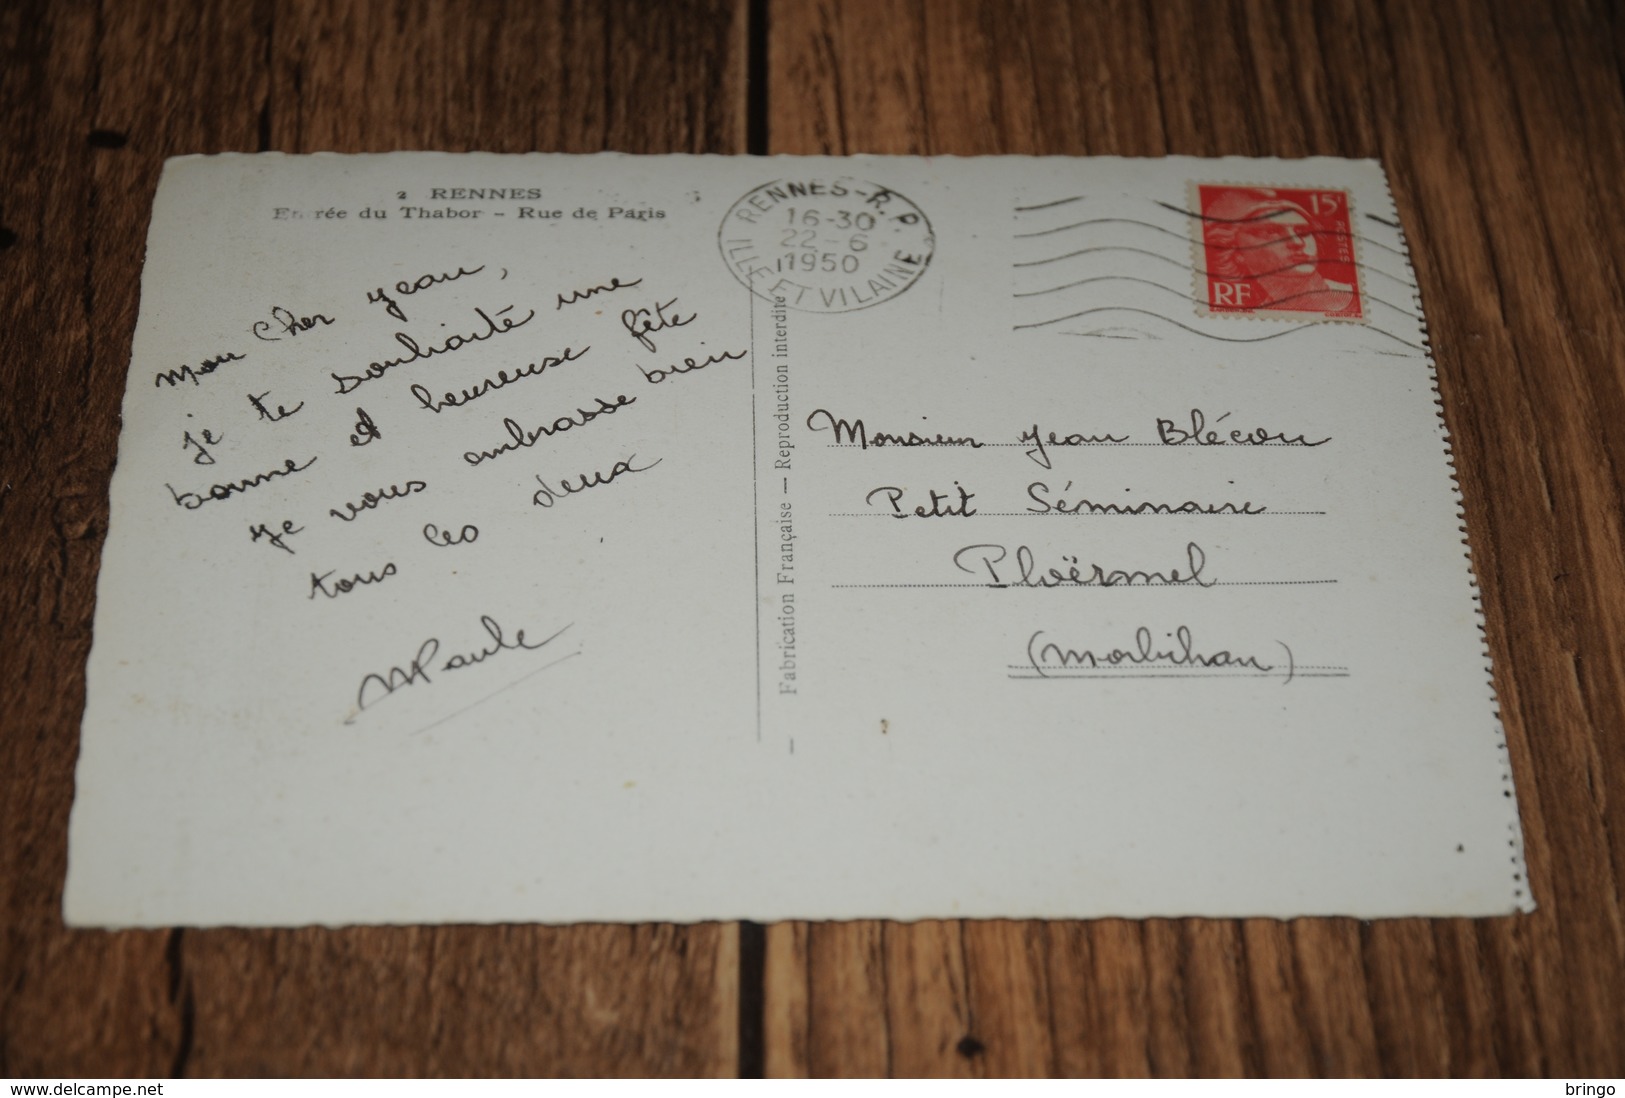 2 RENNES
Entrée du Thabor - Rue de Paris
mon cher Jean,
je te souhaite une
bonne et heureuse fête
je vous embrasse bien
tous les deux
MPaule
RENNES-R.P.
16-30
22-6
1950
ILLE ET VILAINE
15F
POSTES
RF
— Fabrication Française — Reproduction interdite
Monsieur Jean Blécon
Petit Séminaire
Ploërmel
(Morbihan)
www.delcampe.net
bringo